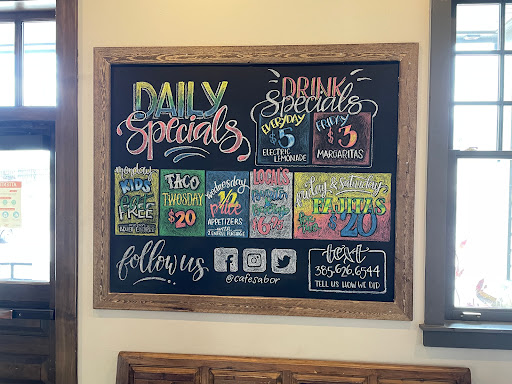 DAILY
Specials
DRINK
Specials
EVERYDAY
$5
ELECTRIC
LEMONADE
FRIDAY
$3
MARGARITAS
monday
KIDS
FREE
TACO
TWOSDAY
$20
wednesday
1/2
price
APPETIZERS
LOCALS
friday & Saturday
FAJITAS
$20
follow us
@cafesabor
text
385.626.6544
TELL US HOW WE DID